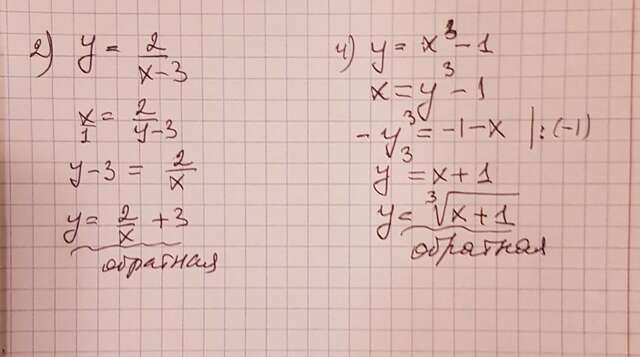 2) y = 2/(x-3)
x/1 = 2/(y-3)
y-3 = 2/x
y = 2/x + 3
обратная
4) y = x³ - 1
x = y³ - 1
- y³ = -1 - x | : (-1)
y³ = x + 1
y = ³√(x + 1)
обратная